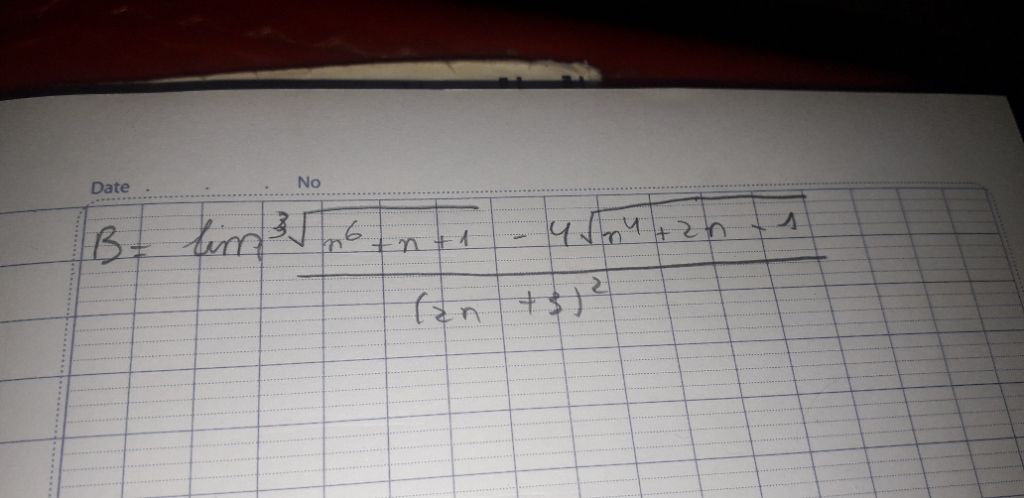 Date . . . No
B = lim ³√(n⁶ + n + 1) - 4√(n⁴ + 2n - 1)
(2n + 3)²